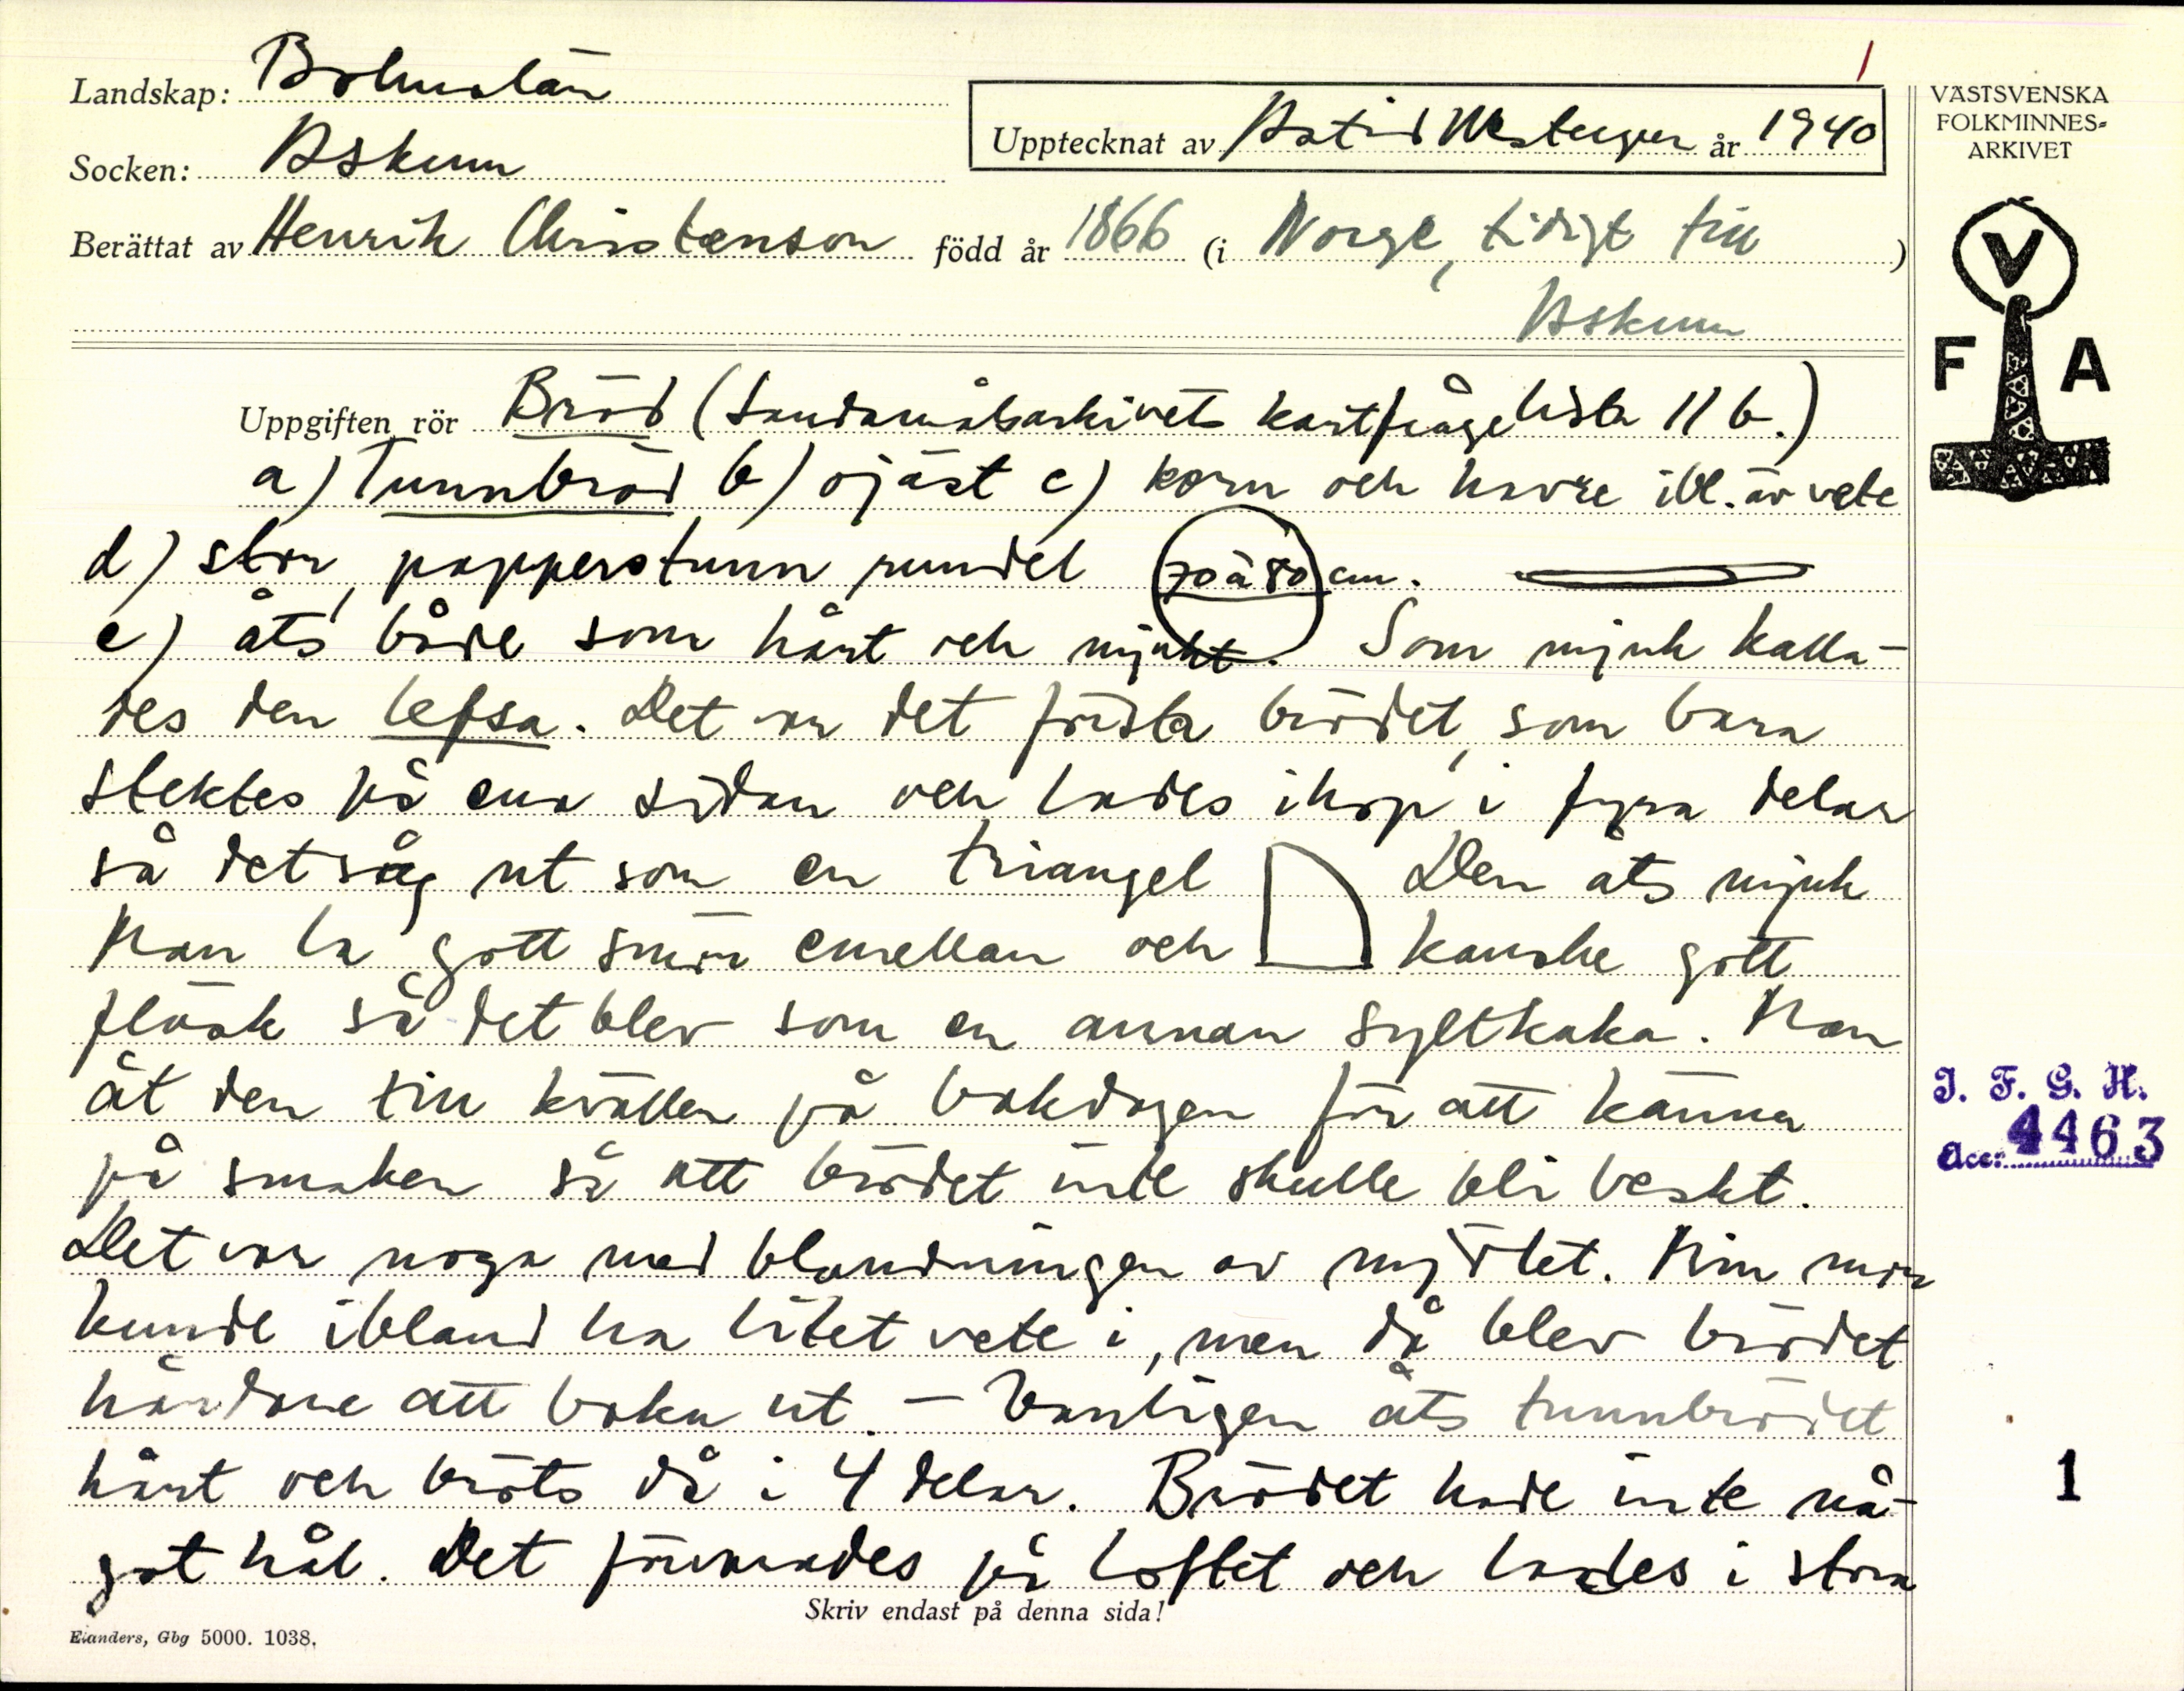 1
Landskap: Bohuslän
Socken: Askum
Upptecknat av Astrid år 1940
Berättat av Henrik Christenson född år 1866 (i Norge, tidigt till )
Askum
VÄSTSVENSKA
FOLKMINNES=
ARKIVET
V
F A
Uppgiften rör Bröd (Landsmålsarkivets kortfrågelista 11 b.)
a) Tunnbröd b) ojäst c) korn och havre ibl. äv vete
d) stor, papperstunn rundel 70 à 80 cm.
e) åts både som hårt och mjukt. Som mjuk kalla-
des den lefsa. Det var det första brödet, som bara
stektes på ena sidan och lades ihop i fyra delar
så det såg ut som en triangel Den åts mjuk
Man la gott smör emellan och kanske gott
fläsk så det blev som en annan syltkaka. Man
åt den till kvällen på bakdagen för att känna
på smaken så att brödet inte skulle bli beskt.
Det var noga med blandningen av mjölet. Min mor
kunde ibland ha litet vete i, men då blev brödet
hårdare att baka ut. – Vanligen åts tunnbrödet
hårt och bröts då i 4 delar. Brödet hade inte nå-
got hål. Det förvarades på loftet och lades i stora
I. F. G. H.
Acc: 4463
1
Skriv endast på denna sida!
Elanders, Gbg 5000. 1038.